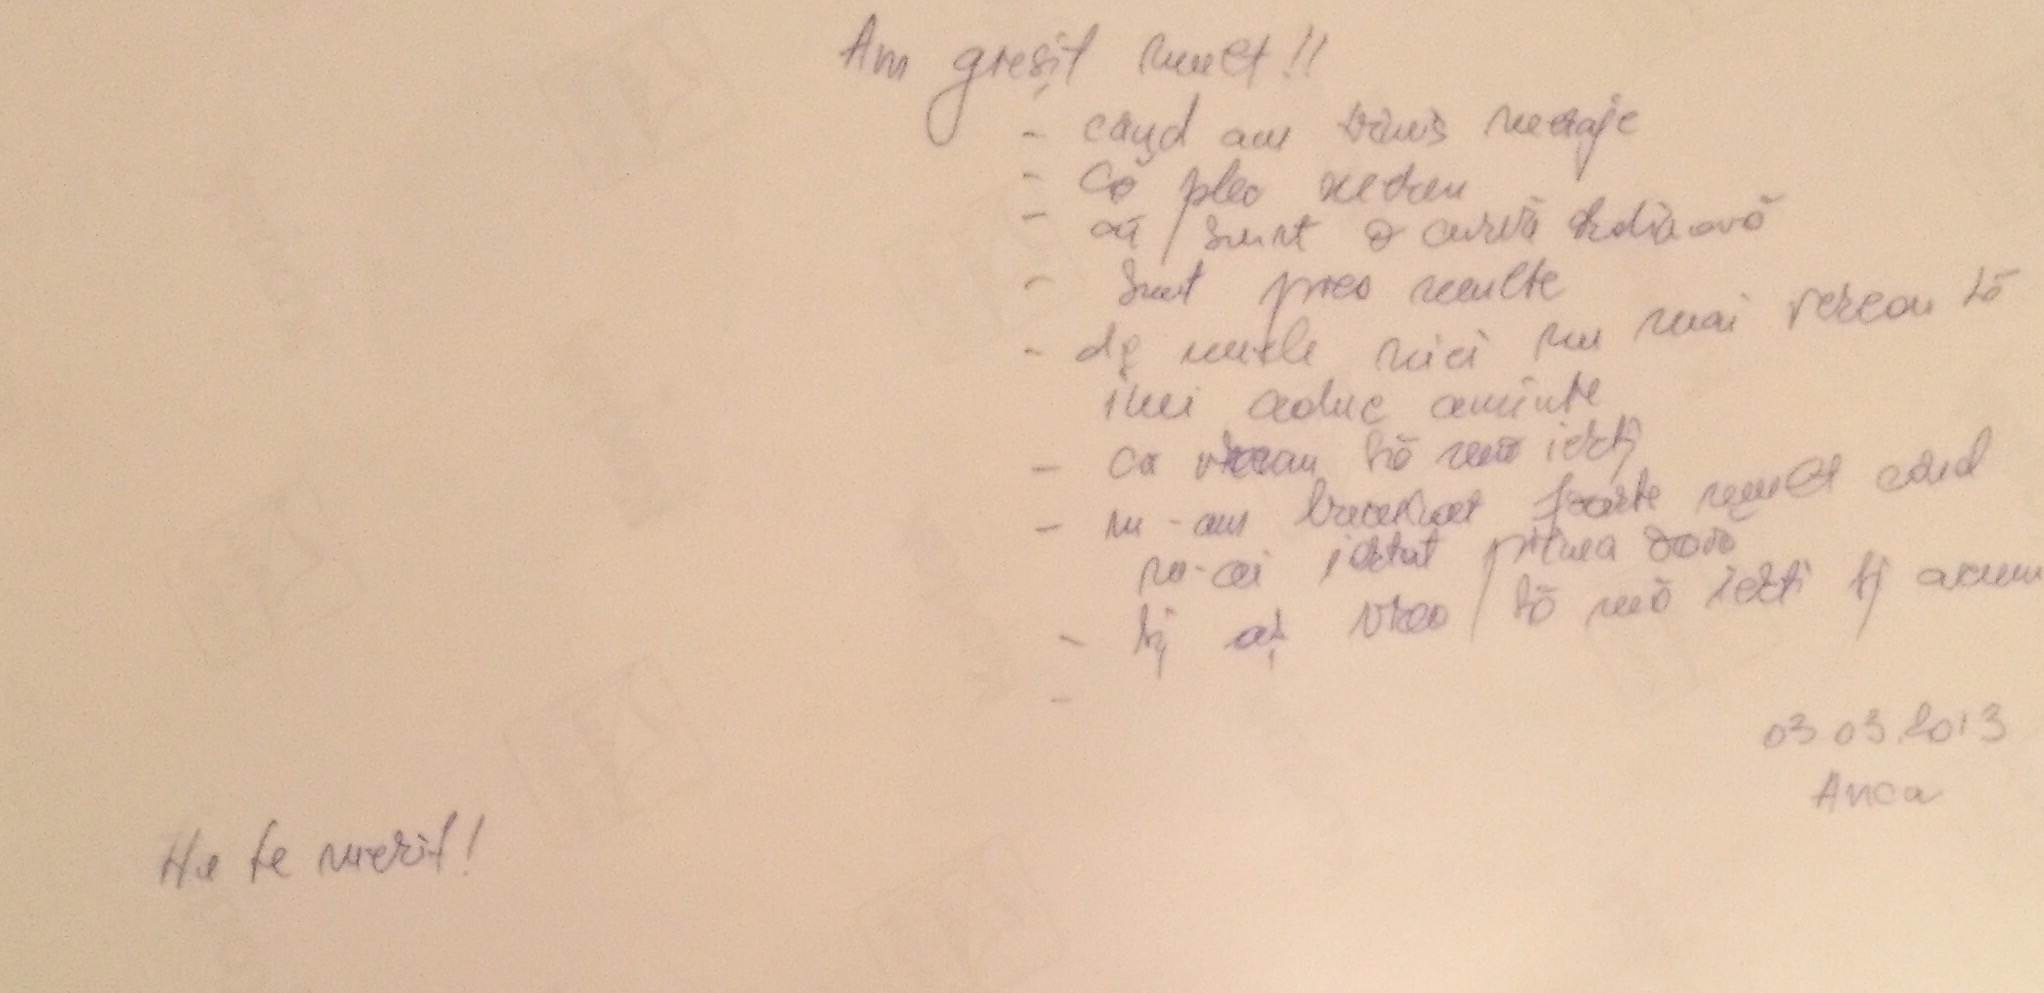 Am greșit mult!!
- când am trimis mesaje
- că plec
- că sunt o curvă ordinară
- Sunt prea multe
- de unele nici nu mai vreau să
îmi aduc aminte
- ca vreau să mă ierți
- m-am bucurat foarte mult când
m-ai iertat prima oară
- și aș vrea să mă ierți și acum
-
03 03 2013
Anca
Nu te merit!